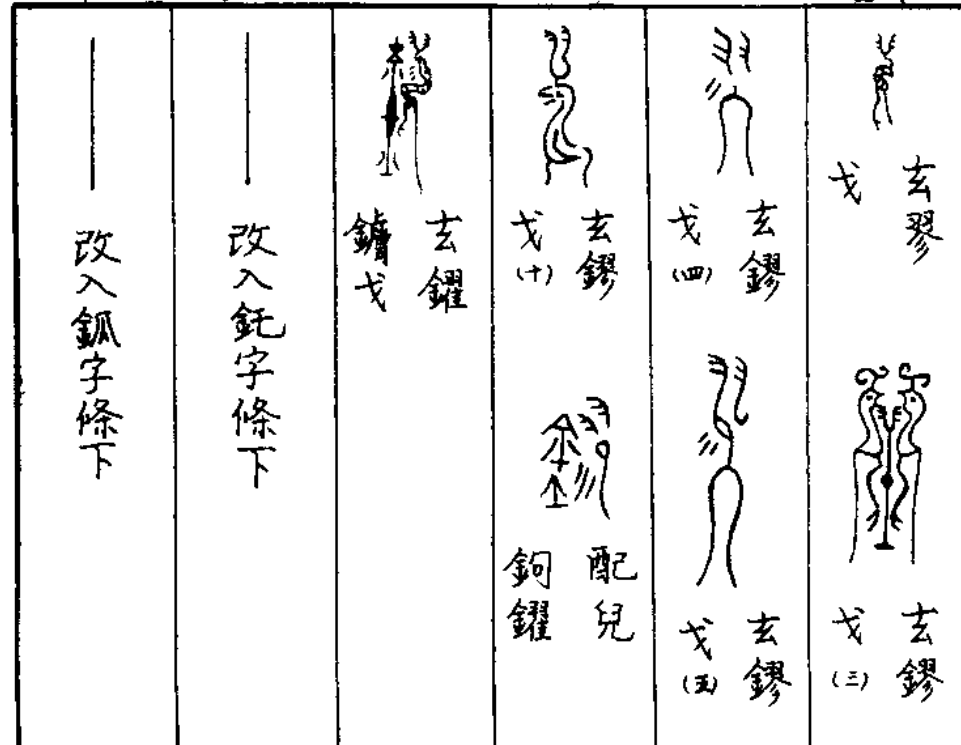 玄翏戈
玄鏐戈(三)
玄鏐戈(四)
玄鏐戈(五)
玄鏐戈(十)
配兒鉤鑃
玄鑃鏞戈
改入𨥏字條下
改入鈲字條下